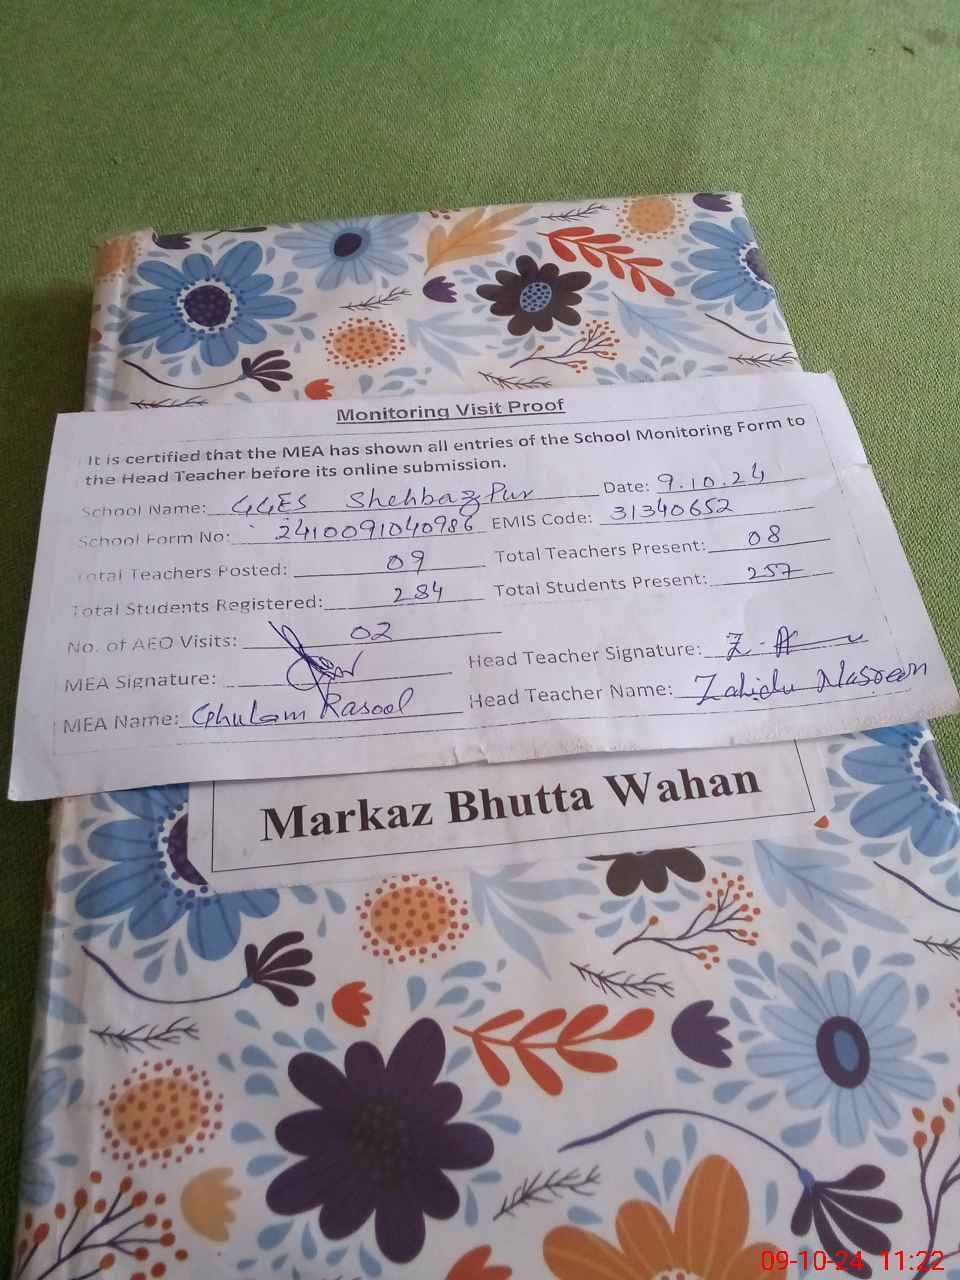 Monitoring Visit Proof
It is certified that the MEA has shown all entries of the School Monitoring Form to
the Head Teacher before its online submission.
School Name: GGES Shehbaz Pur Date: 9.10.24
School Form No: 2410091040986 EMIS Code: 31340652
Total Teachers Posted: 09 Total Teachers Present: 08
Total Students Registered: 284 Total Students Present: 257
No. of AEO Visits: 02
MEA Signature: Head Teacher Signature: Z.A
MEA Name: Ghulam Rasool Head Teacher Name: Zahida Nasreen
Markaz Bhutta Wahan
09-10-24 11:22